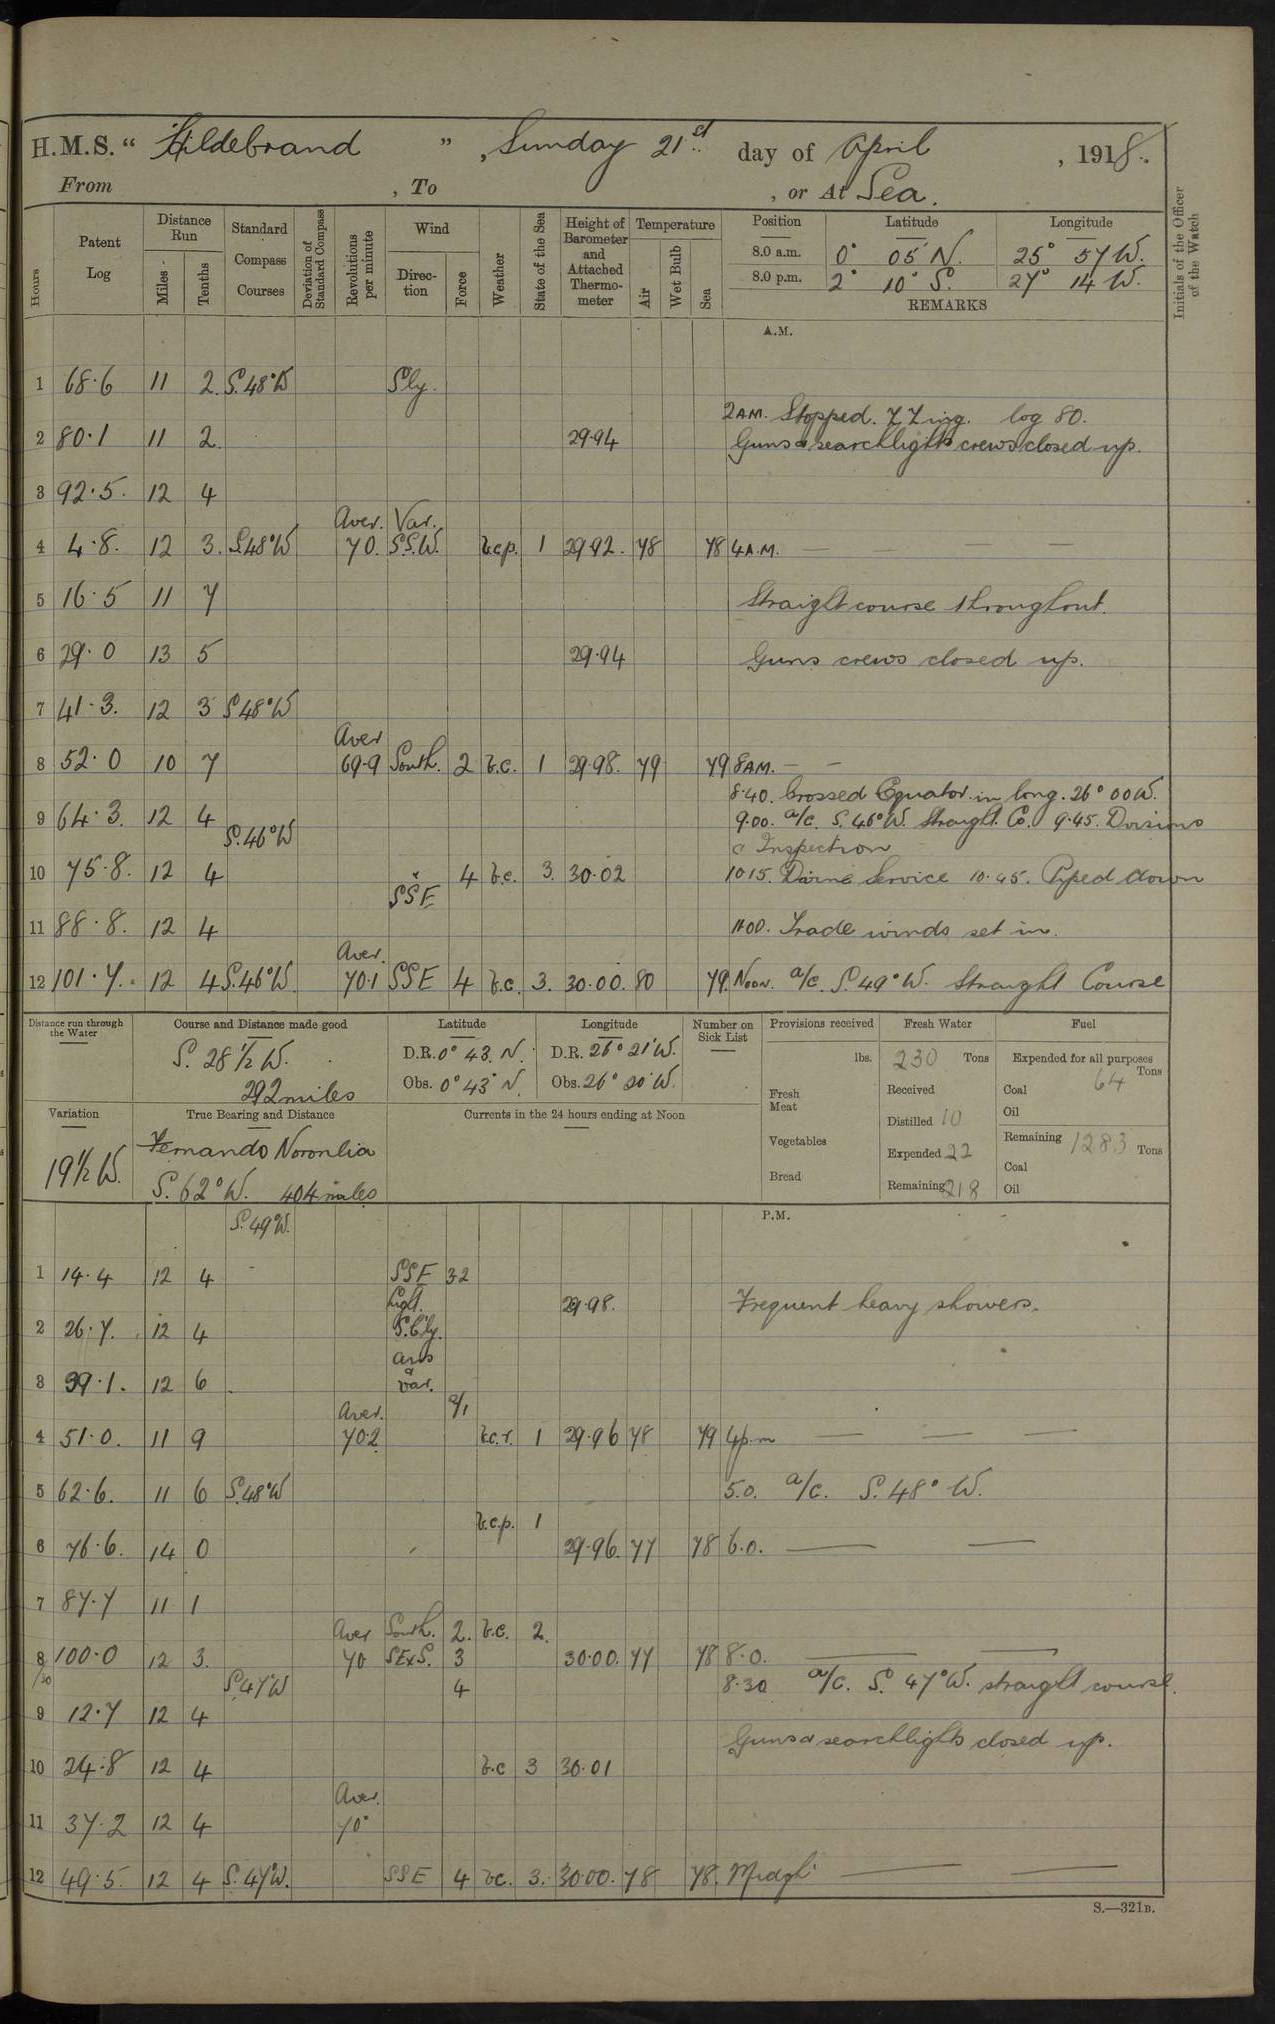 H.M.S. “ Hildebrand ” , Sunday 21st day of April , 1918.
From , To , or At Sea.
Hours Patent Log Distance Run Miles Tenths Standard Compass Courses Deviation of Standard Compass Revolutions per minute Wind Direction Force Weather State of the Sea Height of Barometer and Attached Thermometer Temperature Air Wet Bulb Sea Position Latitude Longitude Initials of the Officer of the Watch
8.0 a.m. 0° 05' N. 25° 57 W.
8.0 p.m. 2° 10° S. 27° 14 W.
REMARKS
A.M.
1 68.6 11 2. S.48°W Sly.
2AM. Stopped. Z Zing. log 80.
2 80.1 11 2. 29.94 Guns & searchlights crews closed up.
3 92.5. 12 4
Aver. Var.
4 4.8. 12 3. S.48°W 70. S.S.W. b.c.p. 1 29.92. 78 78 4A.M. — — —
5 16.5 11 7 Straight course throughout.
6 29.0 13 5 29.94 Guns crews closed up.
7 41.3. 12 3 S.48°W
Aver
8 52.0 10 7 69.9 South. 2 b.c. 1 29.98. 79 79 8AM. — —
8.40. Crossed Equator in long. 26° 00W.
9 64.3. 12 4 9.00. a/c. S. 46°W. Straight Co. 9.45. Divisions
S.46°W & Inspection
10 75.8. 12 4 4 b.c. 3. 30.02 10 15. Divine Service 10.45. Piped down
SSE
11 88.8. 12 4 11.00. Trade winds set in.
Aver.
12 101.7. 12 4 S.46°W. 70.1 SSE 4 b.c. 3. 30.00. 80 79. Noon. a/c. S. 49° W. Straight Course
Distance run through the Water Course and Distance made good Latitude Longitude Number on Sick List Provisions received Fresh Water Fuel
S. 28 1/2 W. D.R. 0° 43. N. D.R. 26° 21'W. lbs. 230 Tons Expended for all purposes
292 miles Obs. 0° 43' N. Obs. 26° 20' W. Fresh Meat Received Coal 64 Tons
Variation True Bearing and Distance Currents in the 24 hours ending at Noon Distilled 10 Oil
19 1/2 W. Fernando Noronha Vegetables Expended 22 Remaining 1283 Tons
S. 62° W. 404 miles Bread Remaining 218 Coal
Oil
P.M.
S.49°W.
1 14.4 12 4 SSE 32
Light. 29.98. Frequent heavy showers.
2 26.7. 12 4 S.E'ly.
airs
3 39.1. 12 6 & var.
Aver. 0/1
4 51.0. 11 9 70.2 b.c.r. 1 29.96 78 79 4p.m — — —
5 62.6. 11 6 S.48°W 5.0. a/c. S. 48° W.
b.c.p. 1
6 76.6. 14 0 29.96. 77 78 6.0. — —
7 87.7 11 1
Aver South. 2. b.c. 2.
8 100.0 12 3. 70 SExS. 3 30.00. 77 78 8.0. — —
/30 S.47°W 4 8.30 a/c. S. 47°W. straight course.
9 12.7 12 4
Guns & searchlights closed up.
10 24.8 12 4 b.c 3 30.01
Aver.
11 37.2 12 4 70°
12 49.5. 12 4 S.47°W. SSE 4 b.c. 3. 30.00. 78 78. Midgt — —
S.—321B.